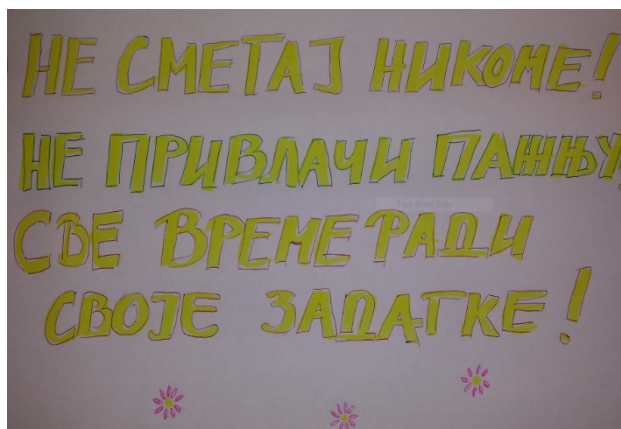 НЕ СМЕТАЈ НИКОМЕ!
НЕ ПРИВЛАЧИ ПАЖЊУ
СВЕ ВРЕМЕ РАДИ
СВОЈЕ ЗАДАТКЕ!